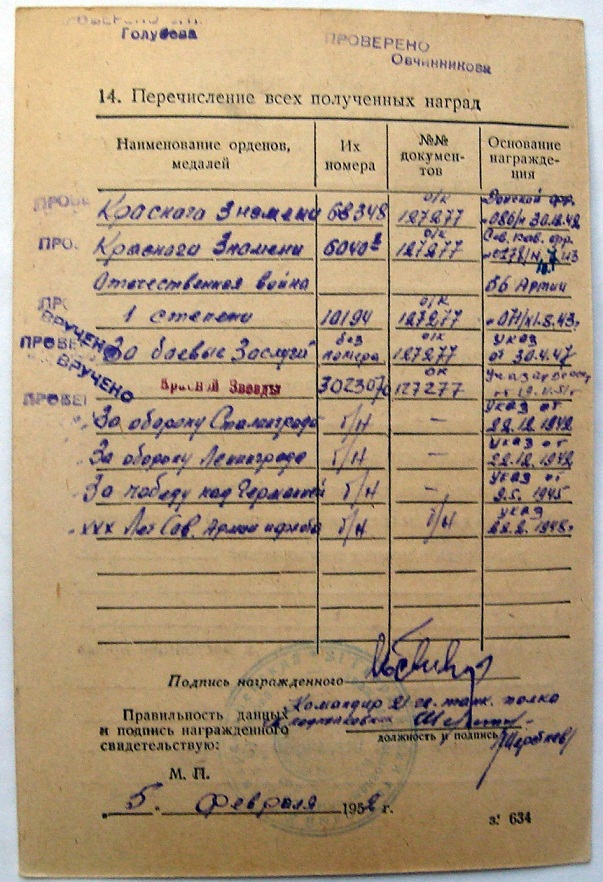 ПРОВЕРЕНО
Голубева
ПРОВЕРЕНО
Овчинникова
14. Перечисление всех полученных наград
Наименование орденов, медалей Их номера №№ документов Основание награждения
Красного Знамени 68348 о/к 127277 Донской фр. №086/н 30.12.42
Красного Знамени 6040 о/к 127277 Сев. Кав. фр.
Отечественная война 56 Армии
1 степени 10194 о/к 127277
За боевые Заслуги без номера о/к 127277 указ от 30.4.47
Красной Звезды 302370 ок 127277
За оборону Сталинграда б/н — указ от 22.12.1942
За оборону Ленинграда б/н — указ от 22.12.1942
За победу над Германией б/н — указ от 9.5.1945
XXX Лет Сов. Армии и флота б/н б/н указ 22.2.1948г
ПРОВЕ
ПРО.
ПР
ВРУЧЕНО
ПРОВЕРЕНО
ВРУЧЕНО
ПРОВЕ
Подпись награжденного
Командир 21 гв. танк. полка
Правильность данных подполковник
и подпись награжденного
должность и подпись
свидетельствую:
М. П.
„5. Февраля 1952 г.
з. 634